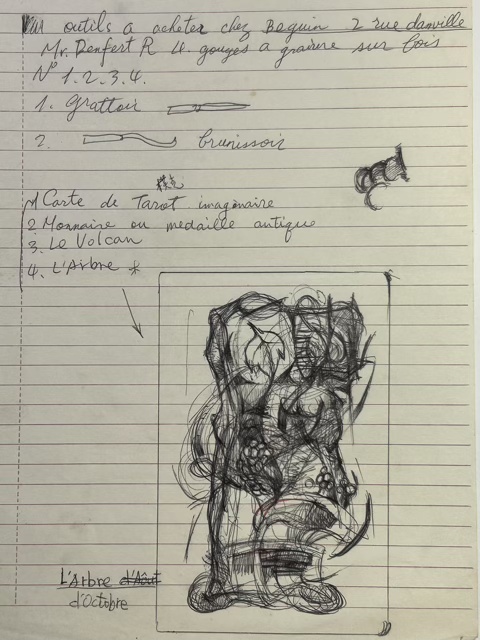 outils a acheter chez Beguin 2 rue danville
Mr. Denfert R 4. gouges a graver sur bois
N° 1.2.3.4.
1. grattoir
2. brunissoir
1 Carte de Tarot imaginaire
2 Monnaire ou medaille antique
3. Le Volcan
4. L'Arbre *
L'Arbre d'Août
d'Octobre